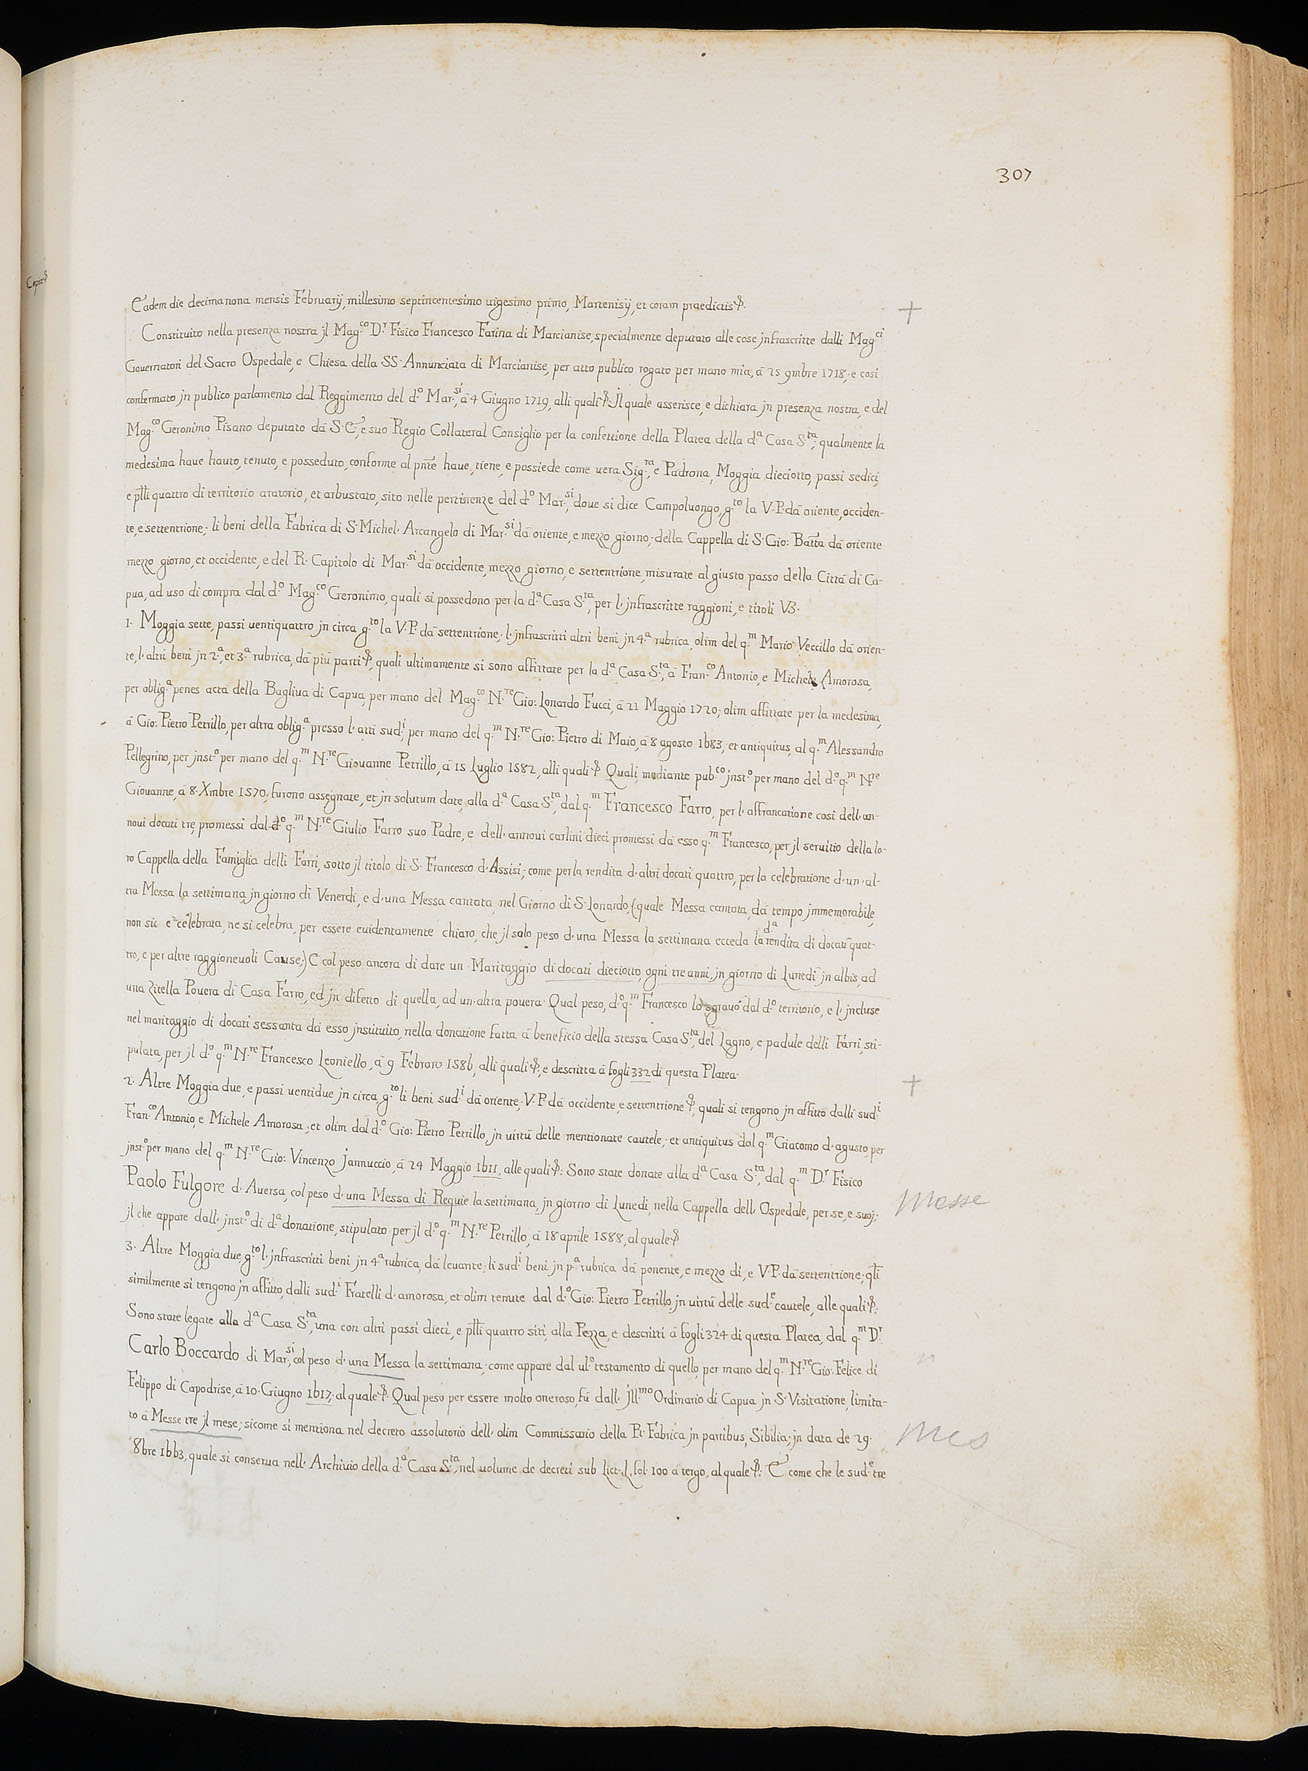 307
Eadem die decima nona mensis Februarij, millesimo septincentesimo uigesimo primo, Martenisij, et coram praedictis &.
Constituito nella presenza nostra jl Mag.co D.r Fisico Francesco Farina di Marcianise, specialmente deputato alle cose jnfrascritte dalli Mag.ci
Gouernatori del Sacro Ospedale, e Chiesa della SS. Annunciata di Marcianise, per atto publico rogato per mano mia, à 25 9mbre 1718; e così
confermato jn publico parlamento dal Reggimento del d.o Mar.si, à 4 Giugno 1719, alli quali &. Jl quale asserisce, e dichiara jn presenza nostra, e del
Mag.co Geronimo Pisano deputato dà S.E., e suo Regio Collateral Consiglio per la confettione della Platea della d.a Casa S.ta, qualmente la
medesima haue hauto, tenuto, e posseduto, conforme al pnte haue, tiene, e possiede come uera Sig.ra, e Padrona, Moggia dieciotto, passi sedici,
e ptti quattro di territorio aratorio, et arbustato, sito nelle pertinenze del d.o Mar.si, doue si dice Campoluongo, g.to la V.P. dà oriente, occiden-
te, e settentrione; li beni della Fabrica di S. Michel' Arcangelo di Mar.si dà oriente, e mezzo giorno; della Cappella di S. Gio: Batta dà oriente
mezzo giorno, et occidente, e del R. Capitolo di Mar.si dà occidente, mezzo giorno, e settentrione, misurate al giusto passo della Città di Ca-
pua, ad uso di compra dal d.o Mag.co Geronimo, quali si possedono per la d.a Casa S.ta, per l' jnfrascritte raggioni, e titoli V3.
1. Moggia sette, passi uentiquattro jn circa g.to la V.P. dà settentrione; l' jnfrascritti altri beni jn 4.a rubrica, olim del q.m Mario Veccillo dà orien-
te, l' altri beni jn 2.a, et 3.a rubrica, dà più parti &, quali ultimamente si sono affittate per la d.a Casa S.ta, à Fran.co Antonio, e Michele Amorosa,
per oblig.a penes acta della Bagliua di Capua, per mano del Mag.co N.re Gio: Lonardo Fucci, à 21 Maggio 1720; olim affittate per la medesima,
à Gio: Pietro Petrillo, per altra oblig.a presso l' atti sud.i, per mano del q.m N.re Gio: Pietro di Maio, à 8 agosto 1683, et antiquitus, al q.m Alessandro
Pellegrino, per jnst.o per mano del q.m N.re Giouanne Petrillo, à 15 Luglio 1582, alli quali & Quali, mediante pub.co jnst.o per mano del d.o q.m N.re
Giouanne, à 8. Xmbre 1570, furono assegnate, et jn solutum date, alla d.a Casa S.ta, dal q.m Francesco Farro, per l' affrancatione così dell' an-
noui docati tre, promessi dal d.o q.m N.re Giulio Farro suo Padre, e dell' annoui carlini dieci promessi dà esso q.m Francesco, per jl seruitio della lo-
ro Cappella della Famiglia delli Farri, sotto jl titolo di S. Francesco d'Assisi; come per la rendita d'altri docati quattro, per la celebratione d'un' al-
tra Messa la settimana, jn giorno di Venerdì, e d'una Messa cantata, nel Giorno di S. Lonardo, (quale Messa cantata, dà tempo jmmemorabile,
non si è celebrata, ne si celebra, per essere euidentamente chiaro, che jl solo peso d'una Messa la settimana ecceda la d.a rendita di docati quat-
tro, e per altre raggioneuoli Cause;) E col peso ancora di dare un Maritaggio di docati dieciotto, ogni tre anni, jn giorno di Lunedì jn albis, ad
una Zitella Pouera di Casa Farro, ed jn difetto di quella, ad un' altra pouera. Qual peso, d.o q.m Francesco lo sgrauò dal d.o territorio, e l' jncluse
nel maritaggio di docati sessanta dà esso jnstituito, nella donatione fatta à beneficio della stessa Casa S.ta, del Lagno, e padule delli Farri, sti-
pulata, per jl d.o q.m N.re Francesco Leoniello, à 9 Febraro 1586, alli quali &, e descritta à fogli 332 di questa Platea.
2. Altre Moggia due, e passi uentidue jn circa, g.to li beni sud.i dà oriente, V.P. dà occidente, e settentrione &, quali si tengono jn affitto dalli sud.i
Fran.co Antonio, e Michele Amorosa, et olim dal d.o Gio: Pietro Petrillo, jn uirtù delle mentionate cautele, et antiquitus dal q.m Giacomo d'agusto, per
jnst.o per mano del q.m N.re Gio: Vincenzo Jannuccio, à 24 Maggio 1611, alle quali &: Sono state donate alla d.a Casa S.ta, dal q.m D.r Fisico
Paolo Fulgore d'Auersa, col peso d'una Messa di Requie la settimana, jn giorno di Lunedì, nella Cappella dell' Ospedale, per se, e suoj;
jl che appare dall' jnst.o di d.a donatione, stipulato per jl d.o q.m N.re Petrillo, à 18 aprile 1588, al quale &
3. Altre Moggia due, g.to l' jnfrascritti beni jn 4.a rubrica, dà leuante; li sud.i beni jn p.a rubrica dà ponente, e mezzo dì, e V.P. dà settentrione; qlli
similmente si tengono jn affitto, dalli sud.i Fratelli d'amorosa, et olim tenute dal d.o Gio: Pietro Petrillo, jn uirtù delle sud.e cautele, alle quali &:
Sono state legate alla d.a Casa S.ta, una con altri passi dieci, e ptti quattro siti, alla Pezza, e descritti à fogli 324 di questa Platea, dal q.m D.r
Carlo Boccardo di Mar.si, col peso d'una Messa la settimana, come appare dal ul.o testamento di quello, per mano del q.m N.re Gio: Felice di
Felippo di Capodrise, à 10. Giugno 1617, al quale &. Qual peso per essere molto oneroso, fù dall' Jll.mo Ordinario di Capua jn S. Visitatione, limita-
to à Messe tre jl mese; sicome si mentiona nel decreto assolutorio dell' olim Commissario della R. Fabrica jn partibus, Sibilia; jn data de 29.
8bre 1663, quale si conserua nell' Archiuio della d.a Casa S.ta, nel uolume de decreti sub lict. L, fol. 100 à tergo, al quale &: E come che le sud.e tre
Messe
Mes